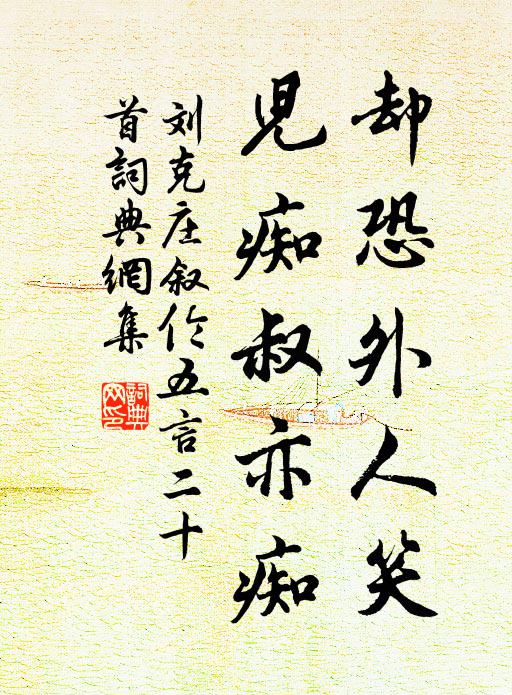 却恐外人笑
児痴叔亦痴
刘克庄叙伦五言二十
首詞典網集
詞典
网印